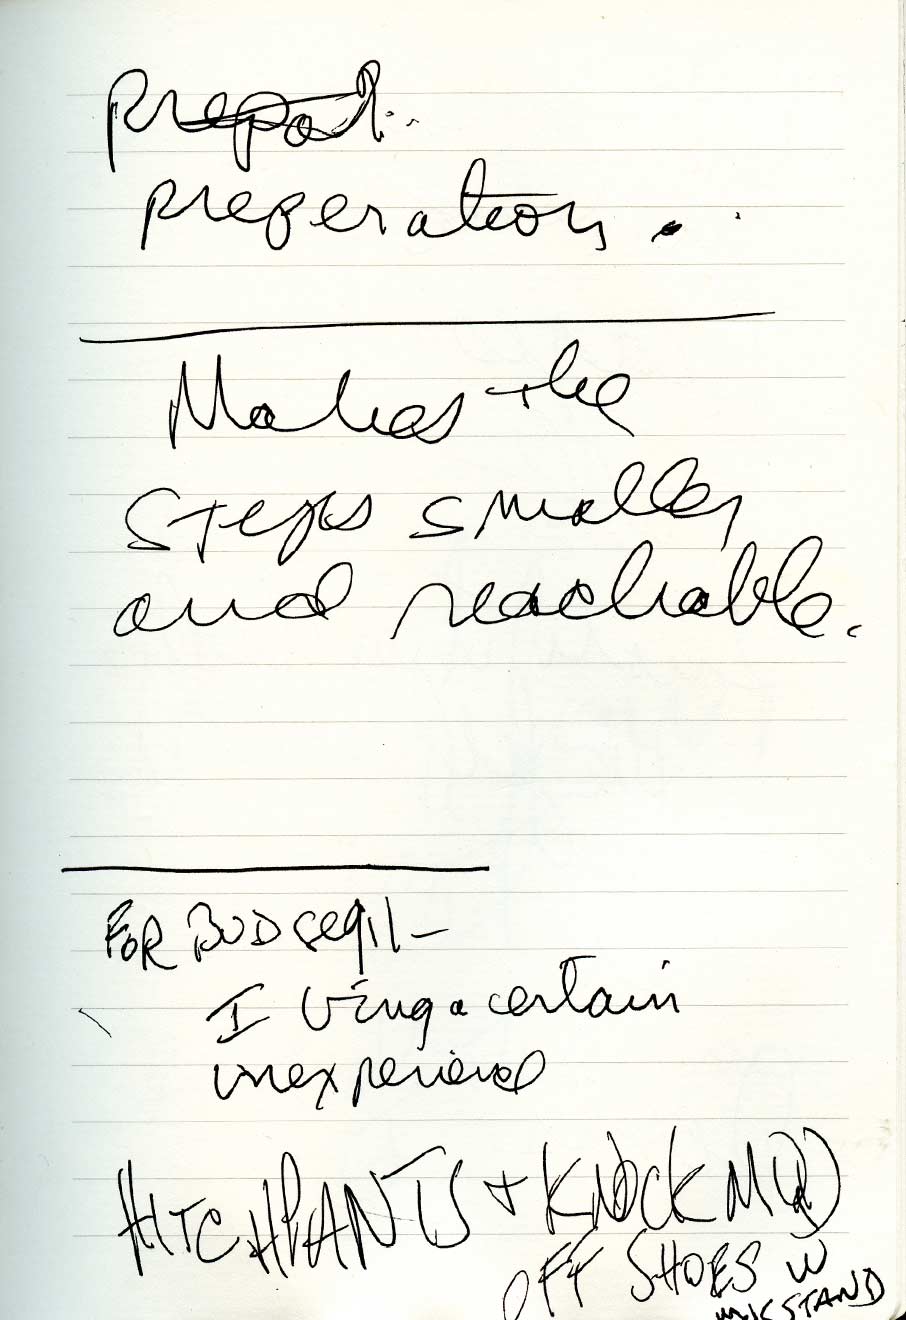 prepar..
preperation..
Makes the
Steps smaller
and reachable.
FOR BUD segil-
I bring a certain
inexperienced
HITCH PANTS + KNOCK MUD
OFF SHOES W
MIC STAND